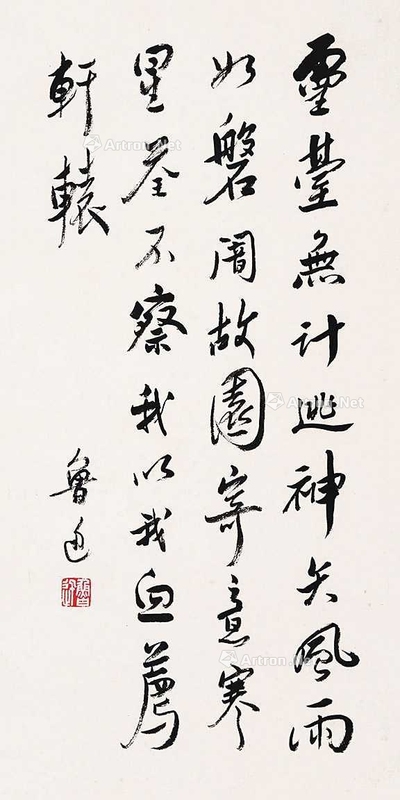 靈臺無計逃神矢風雨
如磐闇故園寄意寒
星荃不察我以我血薦
軒轅
魯迅
Artron.Net
Artron.Net
Artron.Net